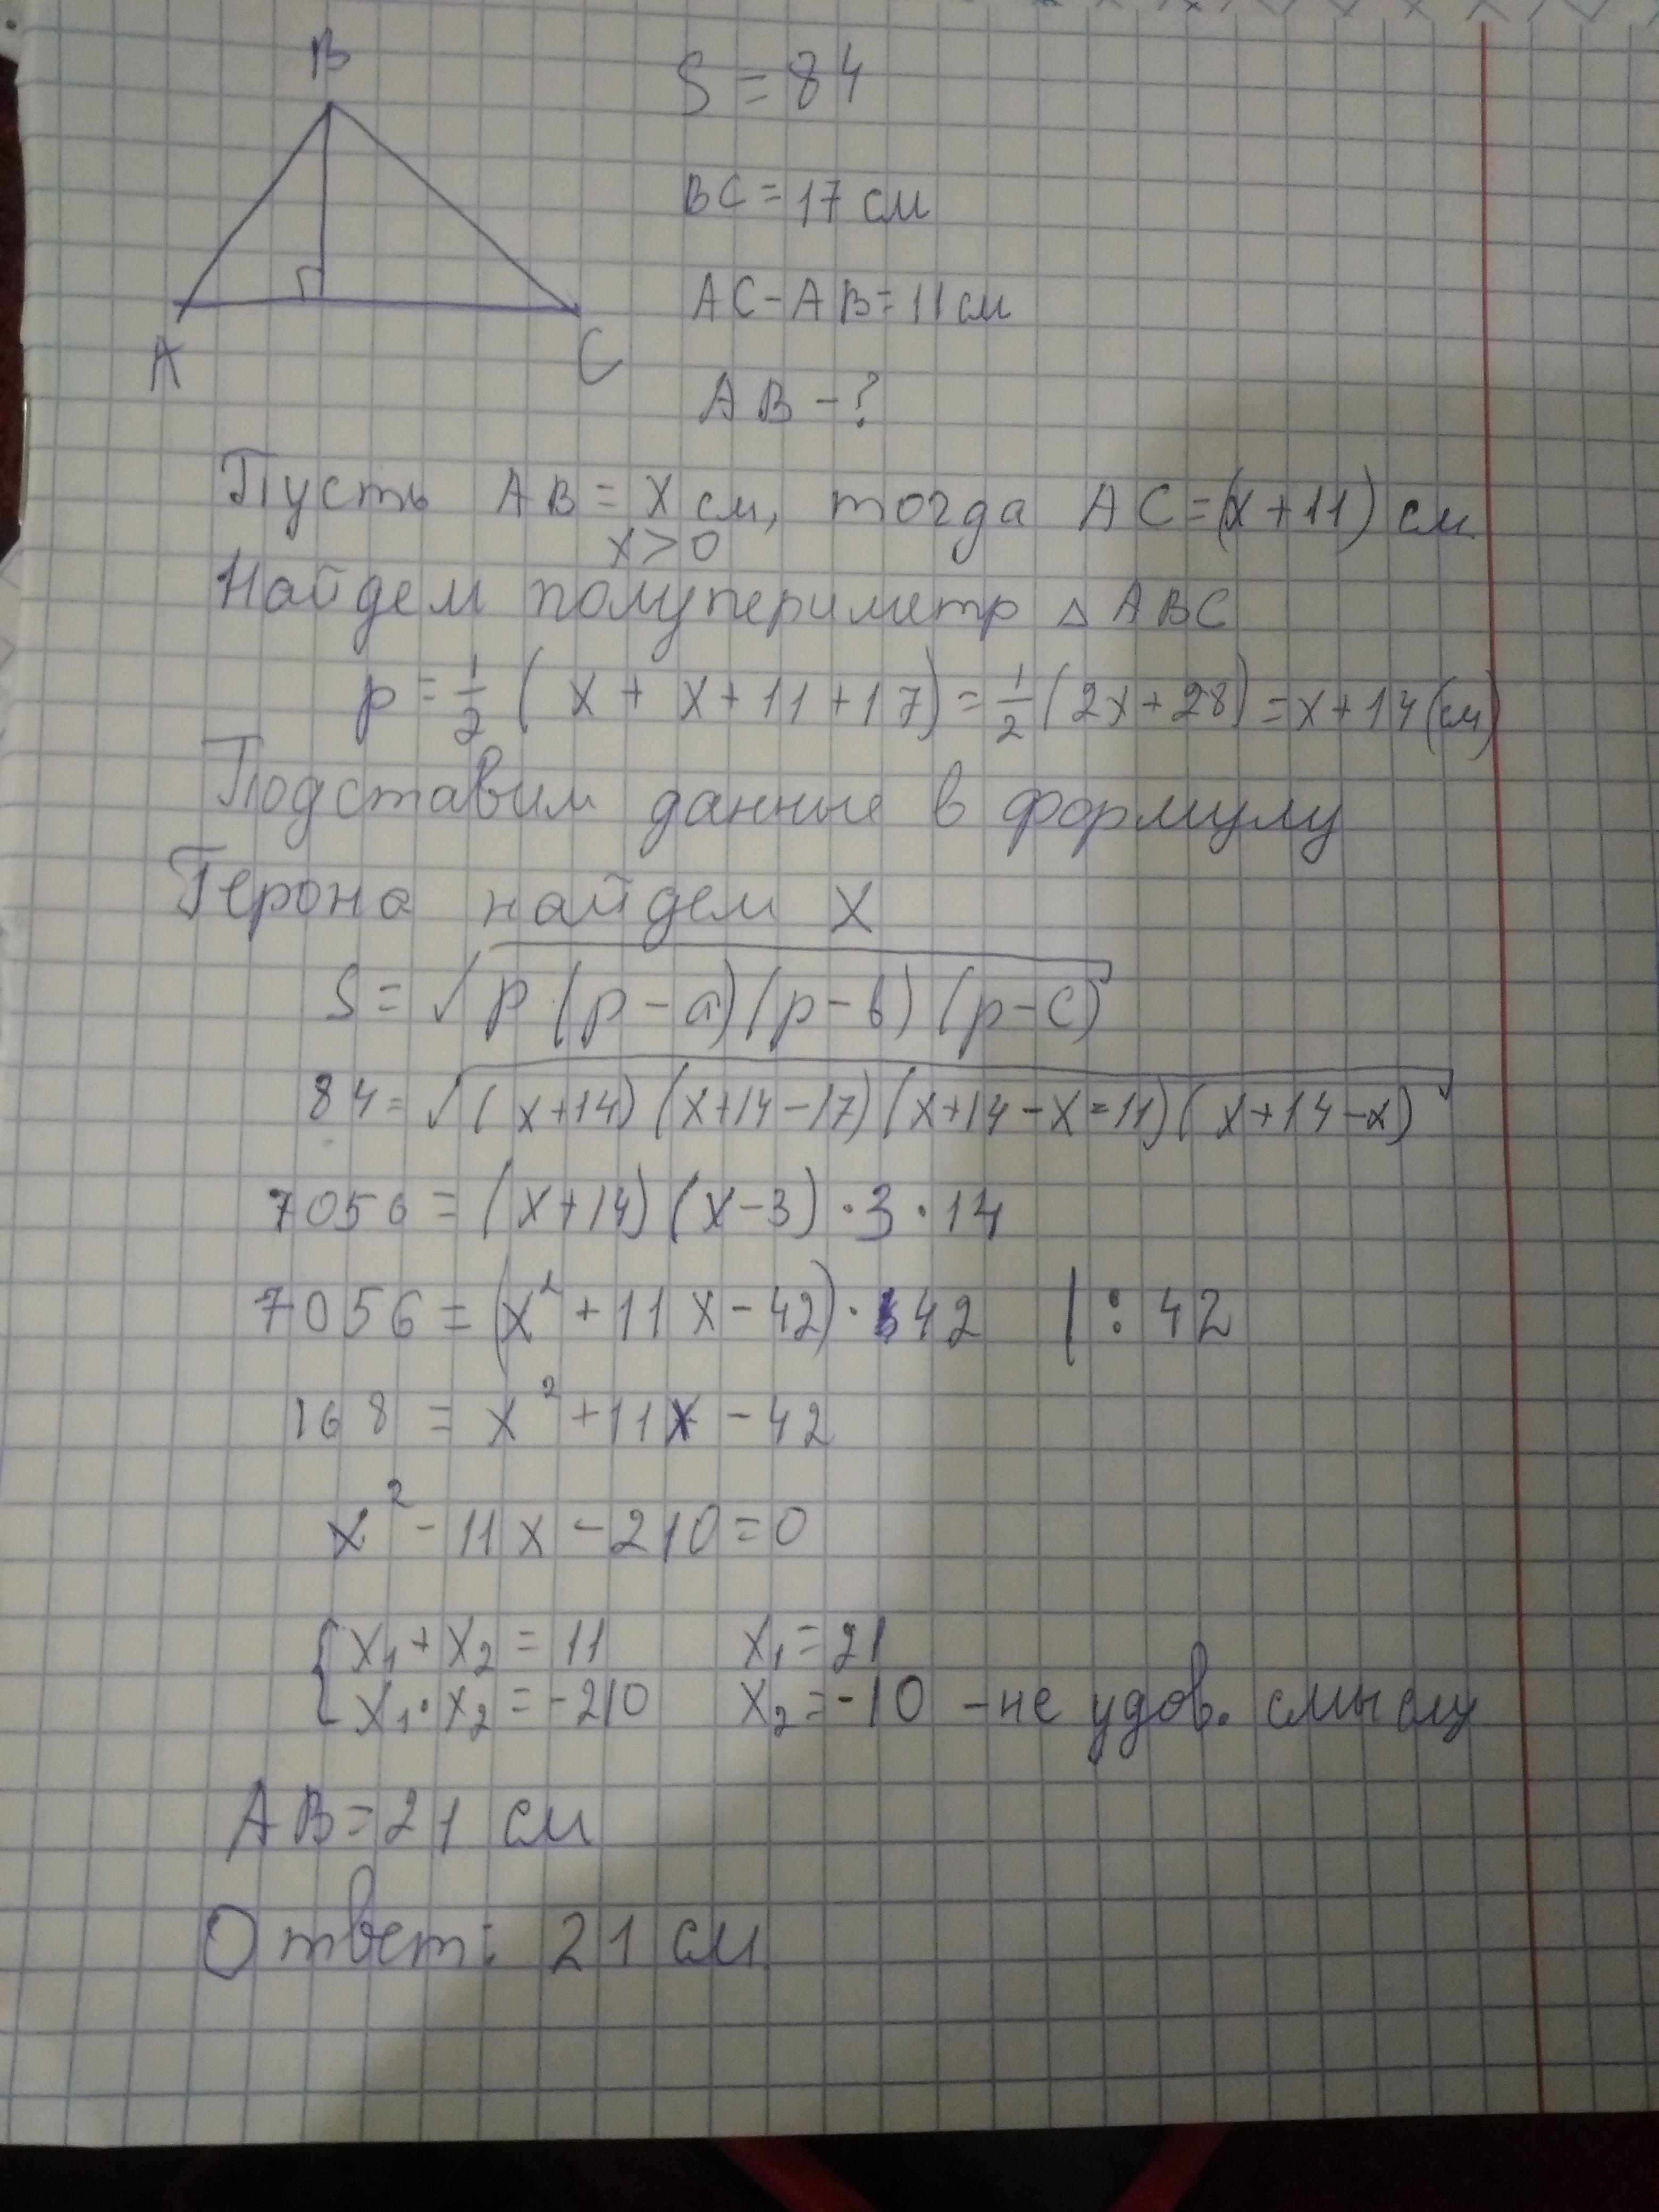 B
S = 84
BC = 17 см
AC - AB = 11 см
A
C
AB - ?
Пусть AB = x см, тогда AC = (x + 11) см
x > 0
Найдем полупериметр △ ABC
p = 1/2 ( x + x + 11 + 17) = 1/2 (2x + 28) = x + 14 (см)
Подставим данные в формулу
Герона найдем x
S = √p (p - a) (p - b) (p - c)
84 = √(x+14) (x+14-17) (x+14-x=11) (x+14-x)
7056 = (x+14) (x-3) · 3 · 14
7056 = (x² + 11x - 42) · 42 | : 42
168 = x² + 11x - 42
x² - 11x - 210 = 0
{ x₁ + x₂ = 11 x₁ = 21
x₁ · x₂ = -210 x₂ = -10 - не удов. смыслу
AB = 21 см
Ответ: 21 см